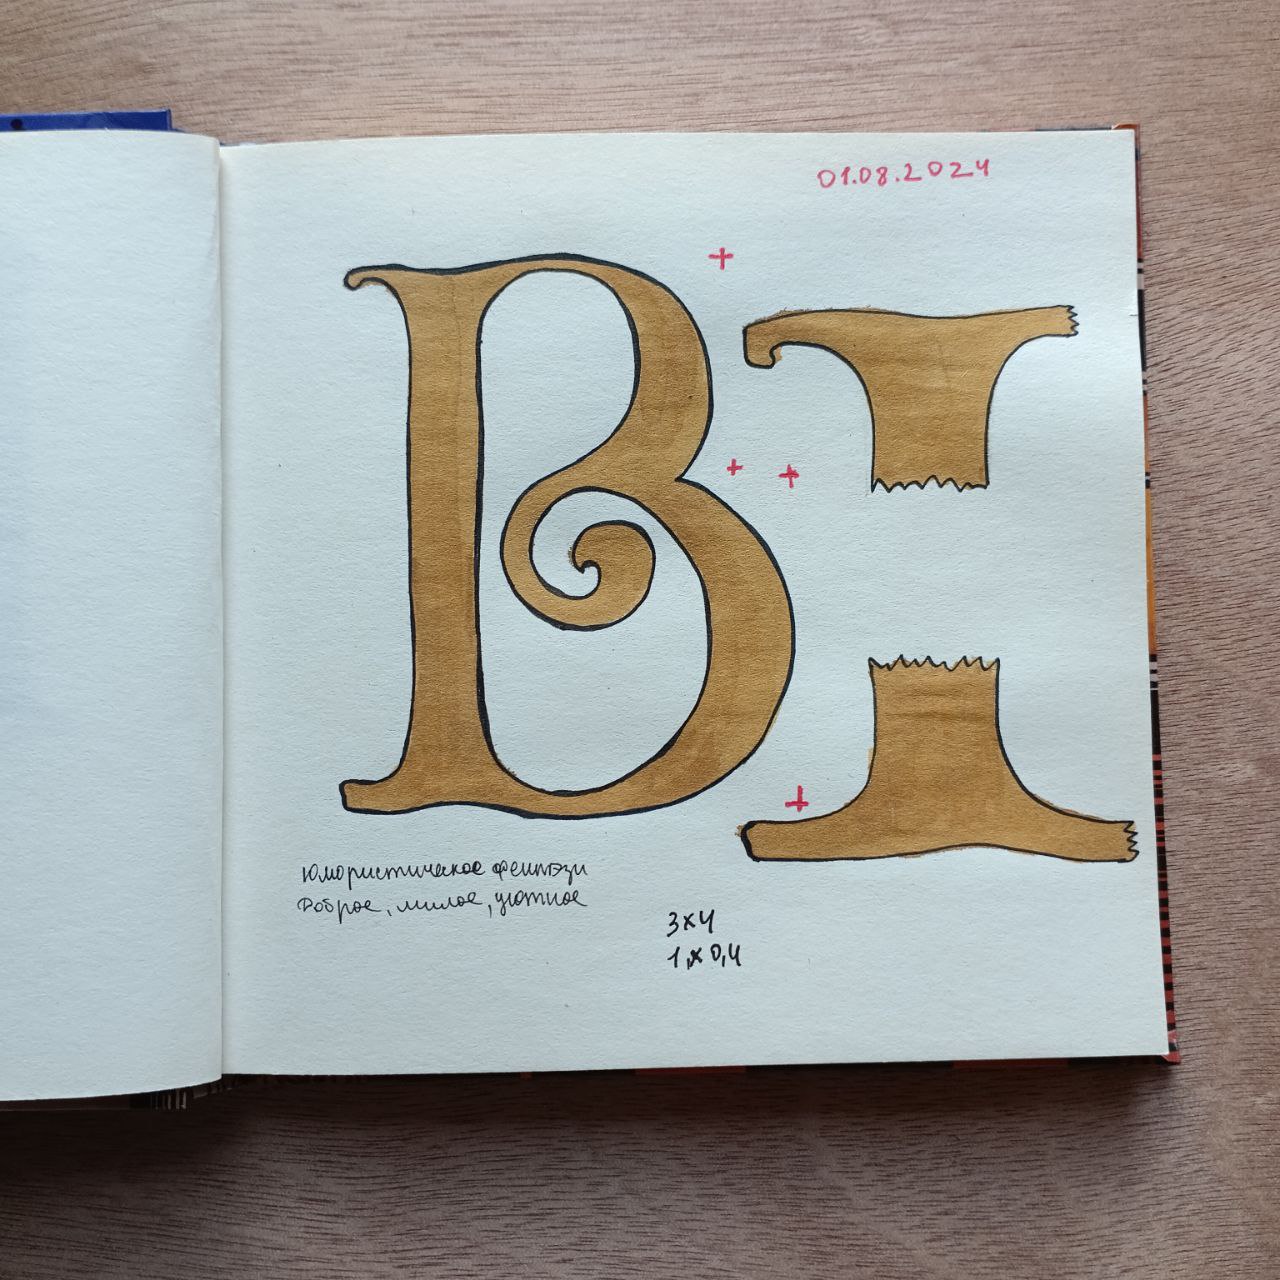 01.08.2024
В
юмористическое фентэзи
Доброе, милое, уютное
3х4
1,х0,4